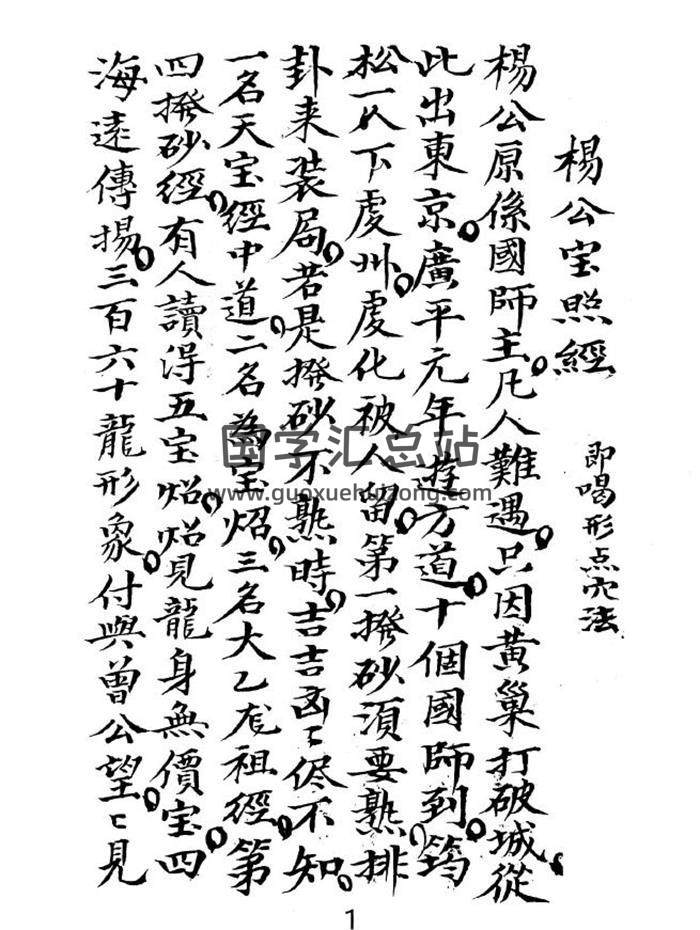 楊公宝照經 即喝形点穴法
楊公原係國師主。凡人難遇。只因黄巢打破城。從
此出東京。廣平元年遊方道。十個國師到。筠
松一人下虔州。虔化被人留。第一撥砂須要熟。排
卦来裝局。若是撥砂不熟時。吉吉凶〻侭不知。
一名天宝經中道。二名為宝炤。三名大乙龙祖經。第
四撥砂經。有人讀淂五宝炤。炤見龍身無價宝。四
海遠傳揚。三百六十龍形象。付與曾公望。〻見
国学汇总站
www.guoxuehuizong.com
1